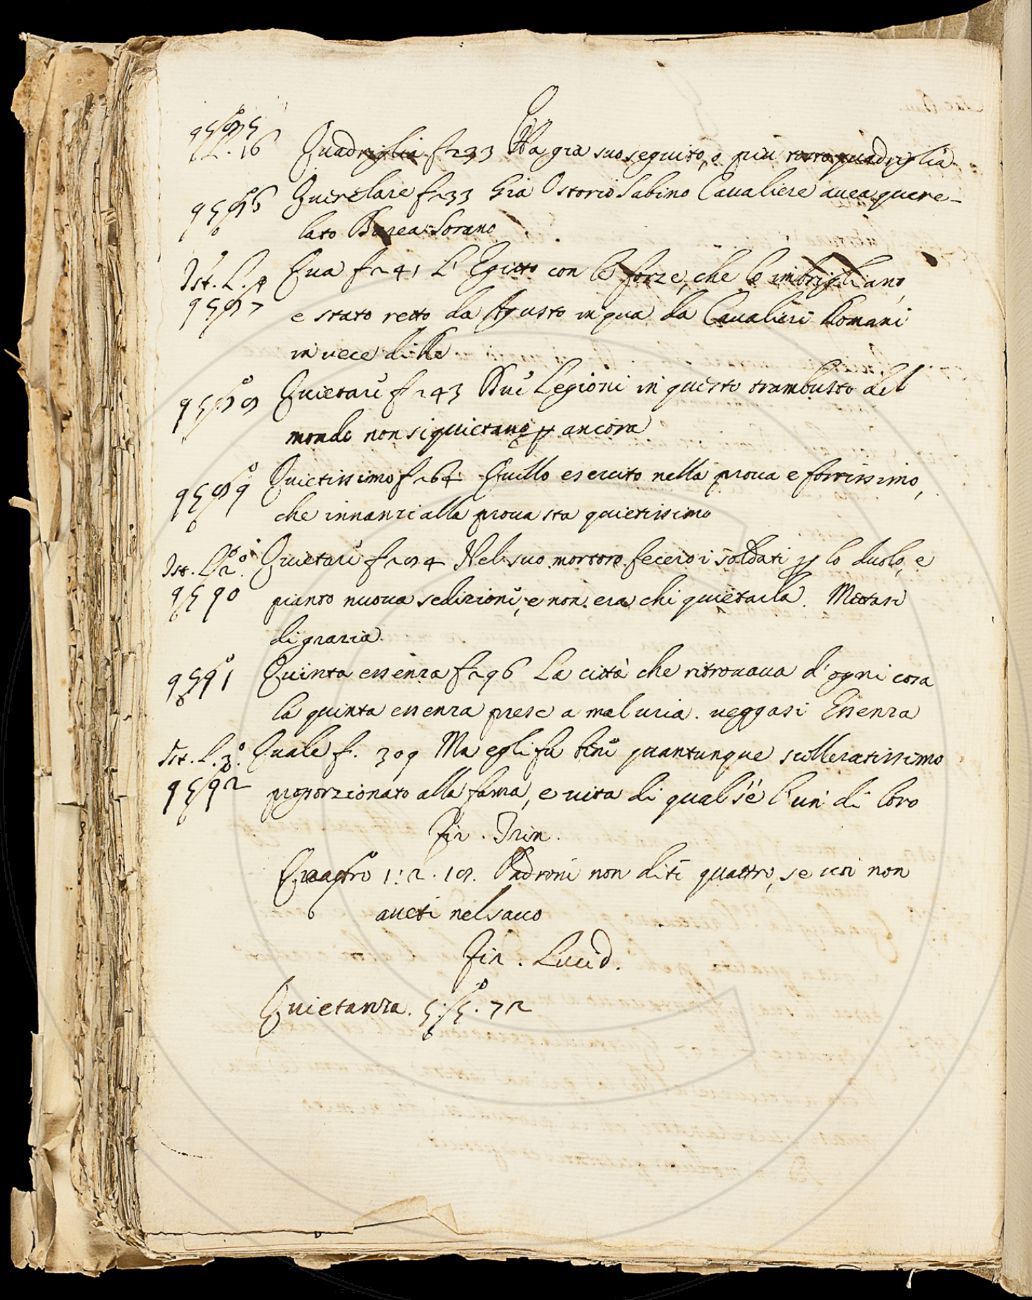 Q
L. 16 Quadriglia f. 233 Ha gia suo seguito, e più torto quadriglia
Querelare f. 233 Gia Ostorio Sabino Cavaliere avea quere-
lato Barea Sorano
Ist. L. Qua f. 241 L'Egitto con le forze, che lo imbrigliano,
e stato retto da Agusto in qua da Cavalieri Romani
in vece di Re
Quietare f. 243 Legioni in questo trambusto del
mondo non si quietano ancora
Quietissimo f. 264 Quello esercito nella prova e fortissimo,
che innanzi alla prova sta quietissimo
Ist. Quietare Nel suo mortoro fecero i soldati lo duolo, e
pianto nuova sedizione, e non era chi quietarla. Mettasi
di grazia
Quinta essenza f. 296 La città che ritrovava d'ogni cosa
la quinta essenza prese a mal uria. veggasi Essenza
Ist. L. 3.° Quale f. 309 Ma egli fu quantunque scelleratissimo
proporzionato alla fama, e vita di qual s'è l'un di loro
Fir. Trin.
1. 2. Padroni non diti quattro, se voi non
aveti nel sacco
Fir. Lucid.
Quietanza. 72